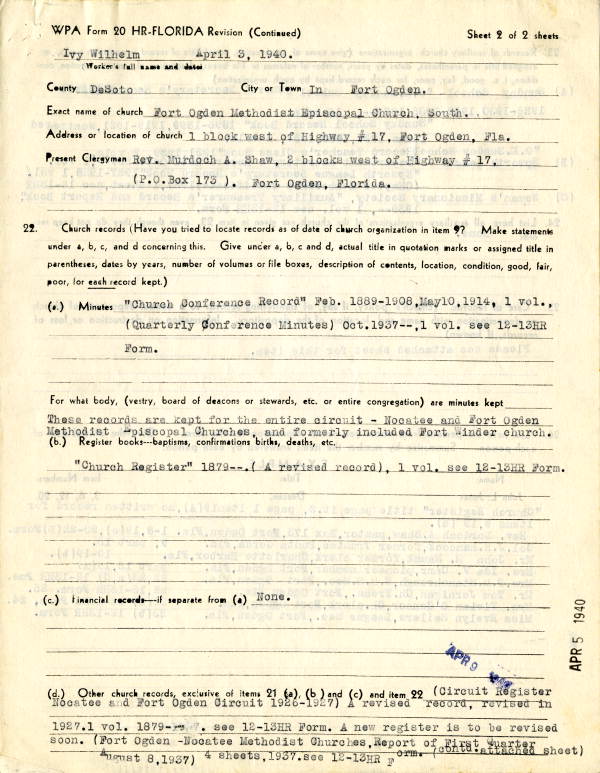 WPA Form 20 HR-FLORIDA Revision (Continued) Sheet 2 of 2 sheets
Ivy Wilhelm April 3, 1940.
(Worker's full name and date)
County DeSoto City or Town In Fort Ogden.
Exact name of church Fort Ogden Methodist Episcopal Church, South.
Address or location of church 1 block west of Highway # 17, Fort Ogden, Fla.
Present Clergyman Rev. Murdoch A. Shaw, 2 blocks west of Highway # 17.
(P.O.Box 173 ). Fort Ogden, Florida.
22. Church records (Have you tried to locate records as of date of church organization in item 9? Make statements
under a, b, c, and d concerning this. Give under a, b, c and d, actual title in quotation marks or assigned title in
parentheses, dates by years, number of volumes or file boxes, description of contents, location, condition, good, fair,
poor, for each record kept.)
(a.) Minutes "Church Conference Record" Feb. 1889-1908, May10,1914, 1 vol.,
(Quarterly Conference Minutes) Oct.1937--,1 vol. see 12-13HR
Form.
For what body, (vestry, board of deacons or stewards, etc. or entire congregation) are minutes kept
These records are kept for the entire circuit - Nocatee and Fort Ogden
Methodist Episcopal Churches, and formerly included Fort Winder church.
(b.) Register books---baptisms, confirmations births, deaths, etc.
"Church Register" 1879--.( A revised record), 1 vol. see 12-13HR Form.
(c.) Financial records---if separate from (a) None.
APR 5 1940
APR 9
(d.) Other church records, exclusive of items 21 (a), (b) and (c) and item 22 (Circuit Register
Nocatee and Fort Ogden Circuit 1926-1927) A revised record, revised in
1927.1 vol. 1879-- . see 12-13HR Form. A new register is to be revised
soon. (Fort Ogden -Nocatee Methodist Churches,Report of First Quarter
August 8,1937) 4 sheets,1937.see 12-13HR Form. (contd.attached sheet)